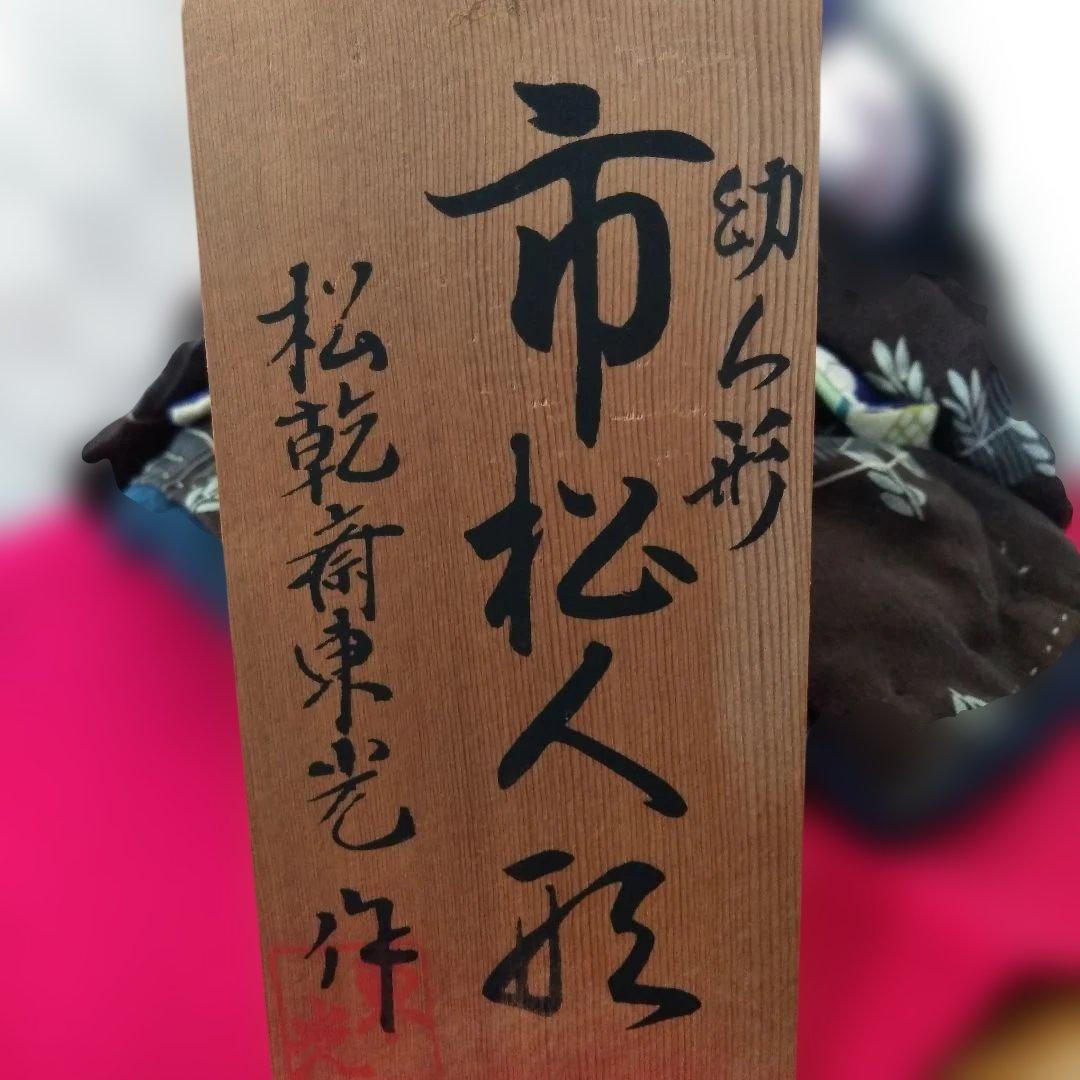 幼人形
市松人形
松乾斎東光作
東光